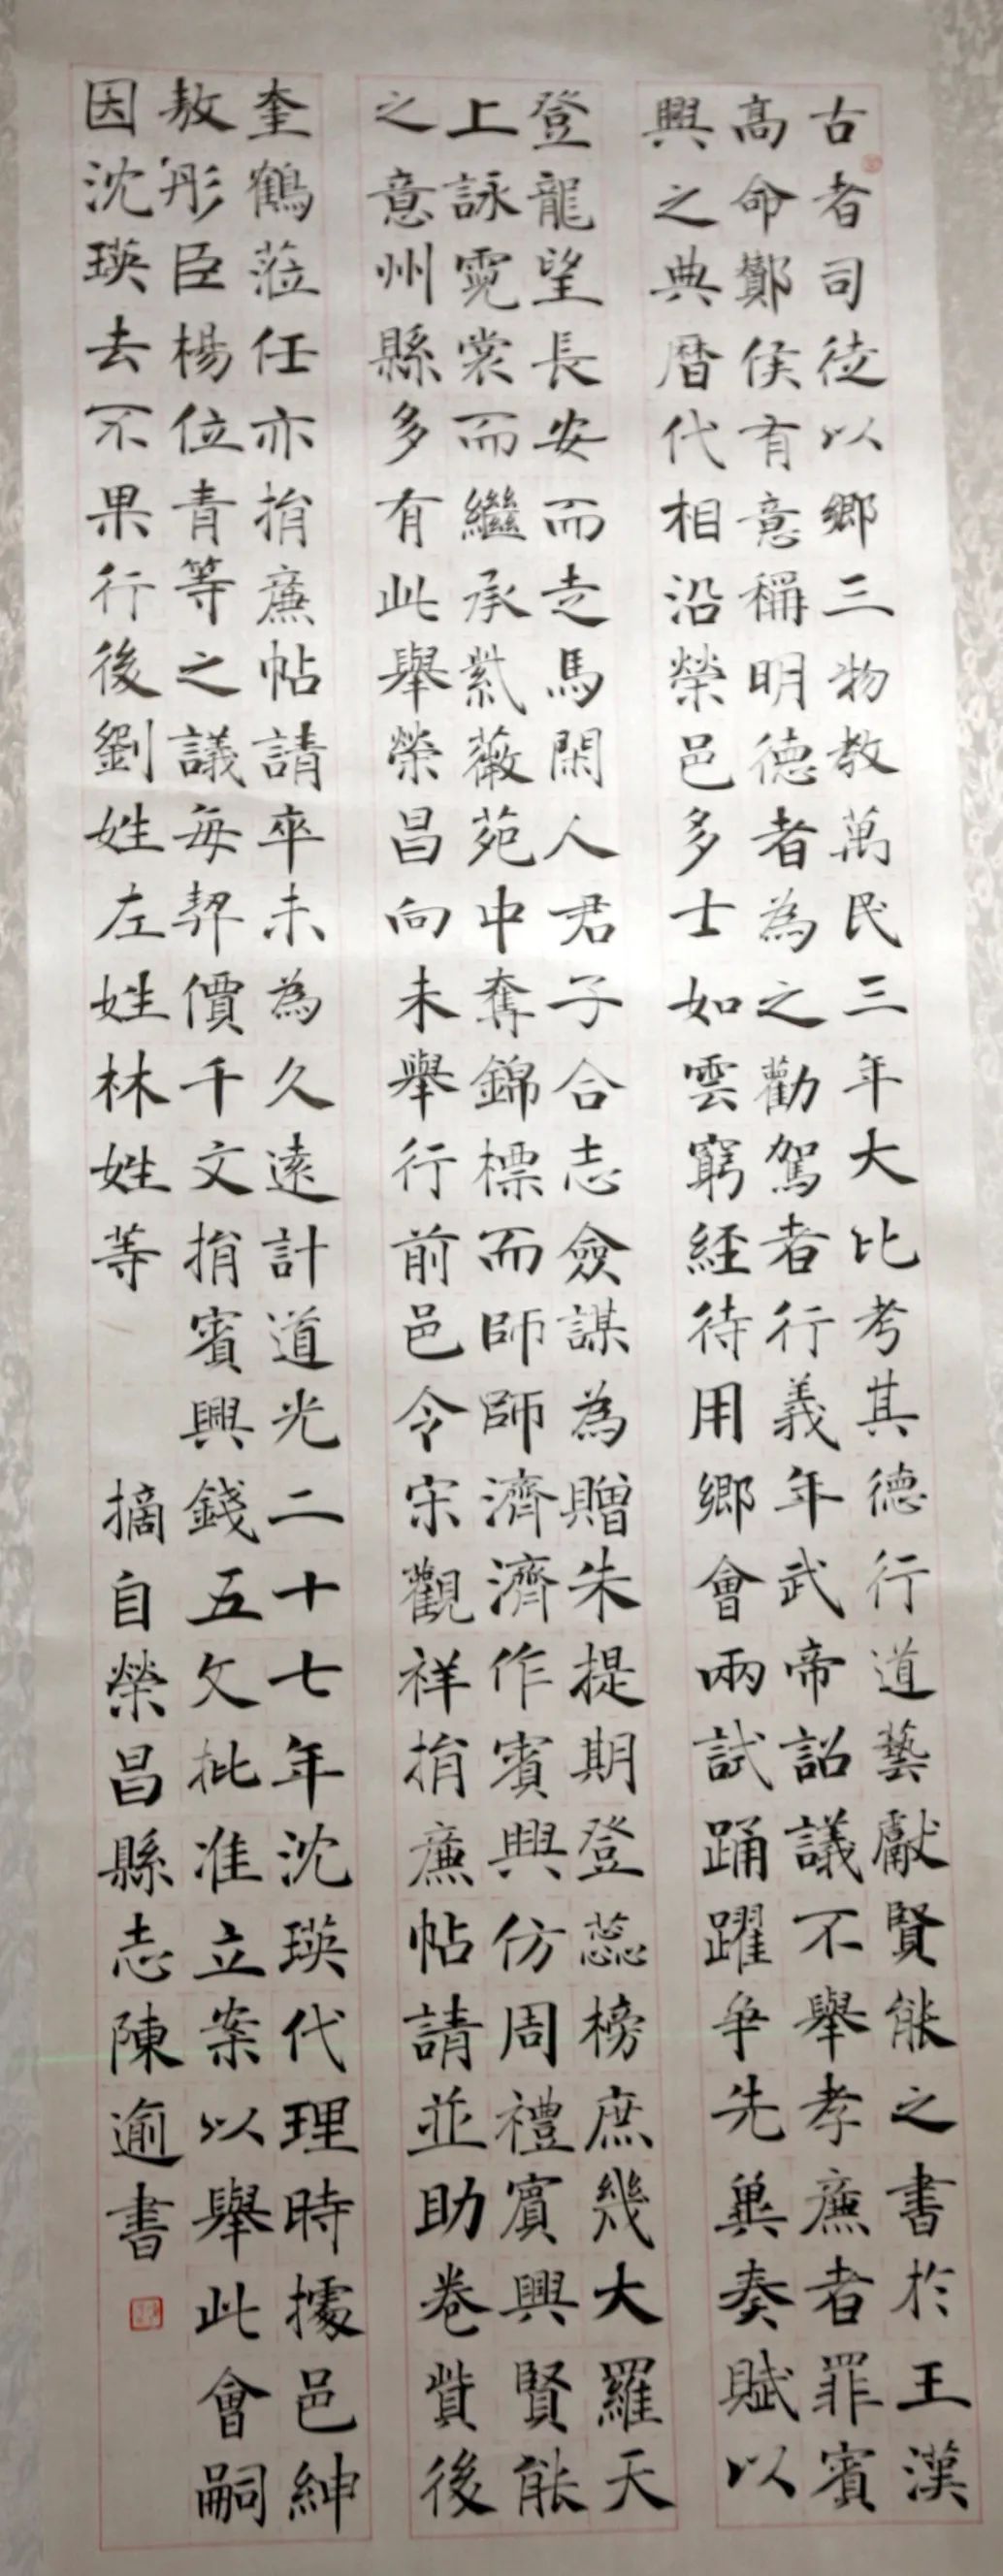 古者司徒以鄉三物教萬民三年大比考其德行道藝獻賢能之書於王漢
高命酇侯有意稱明德者為之勸駕者行義年武帝詔議不舉孝廉者罪賓
興之典曆代相沿榮邑多士如雲窮經待用鄉會兩試踴躍爭先兾奏賦以
登龍望長安而走馬閑人君子合志僉謀為贈朱提期登蕊榜庶幾大羅天
上詠霓裳而繼承紫薇苑中奪錦標而師師濟濟作賓興仿周禮賓興賢能
之意州縣多有此舉榮昌向未舉行前邑令宋觀祥捐廉帖請並助卷貲後
奎鶴蒞任亦捐廉帖請卒未為久遠計道光二十七年沈瑛代理時據邑紳
敖彤臣楊位青等之議每契價千文捐賓興錢五文批准立案以舉此會嗣
因沈瑛去不果行後劉姓左姓林姓等
摘自榮昌縣志陳逾書